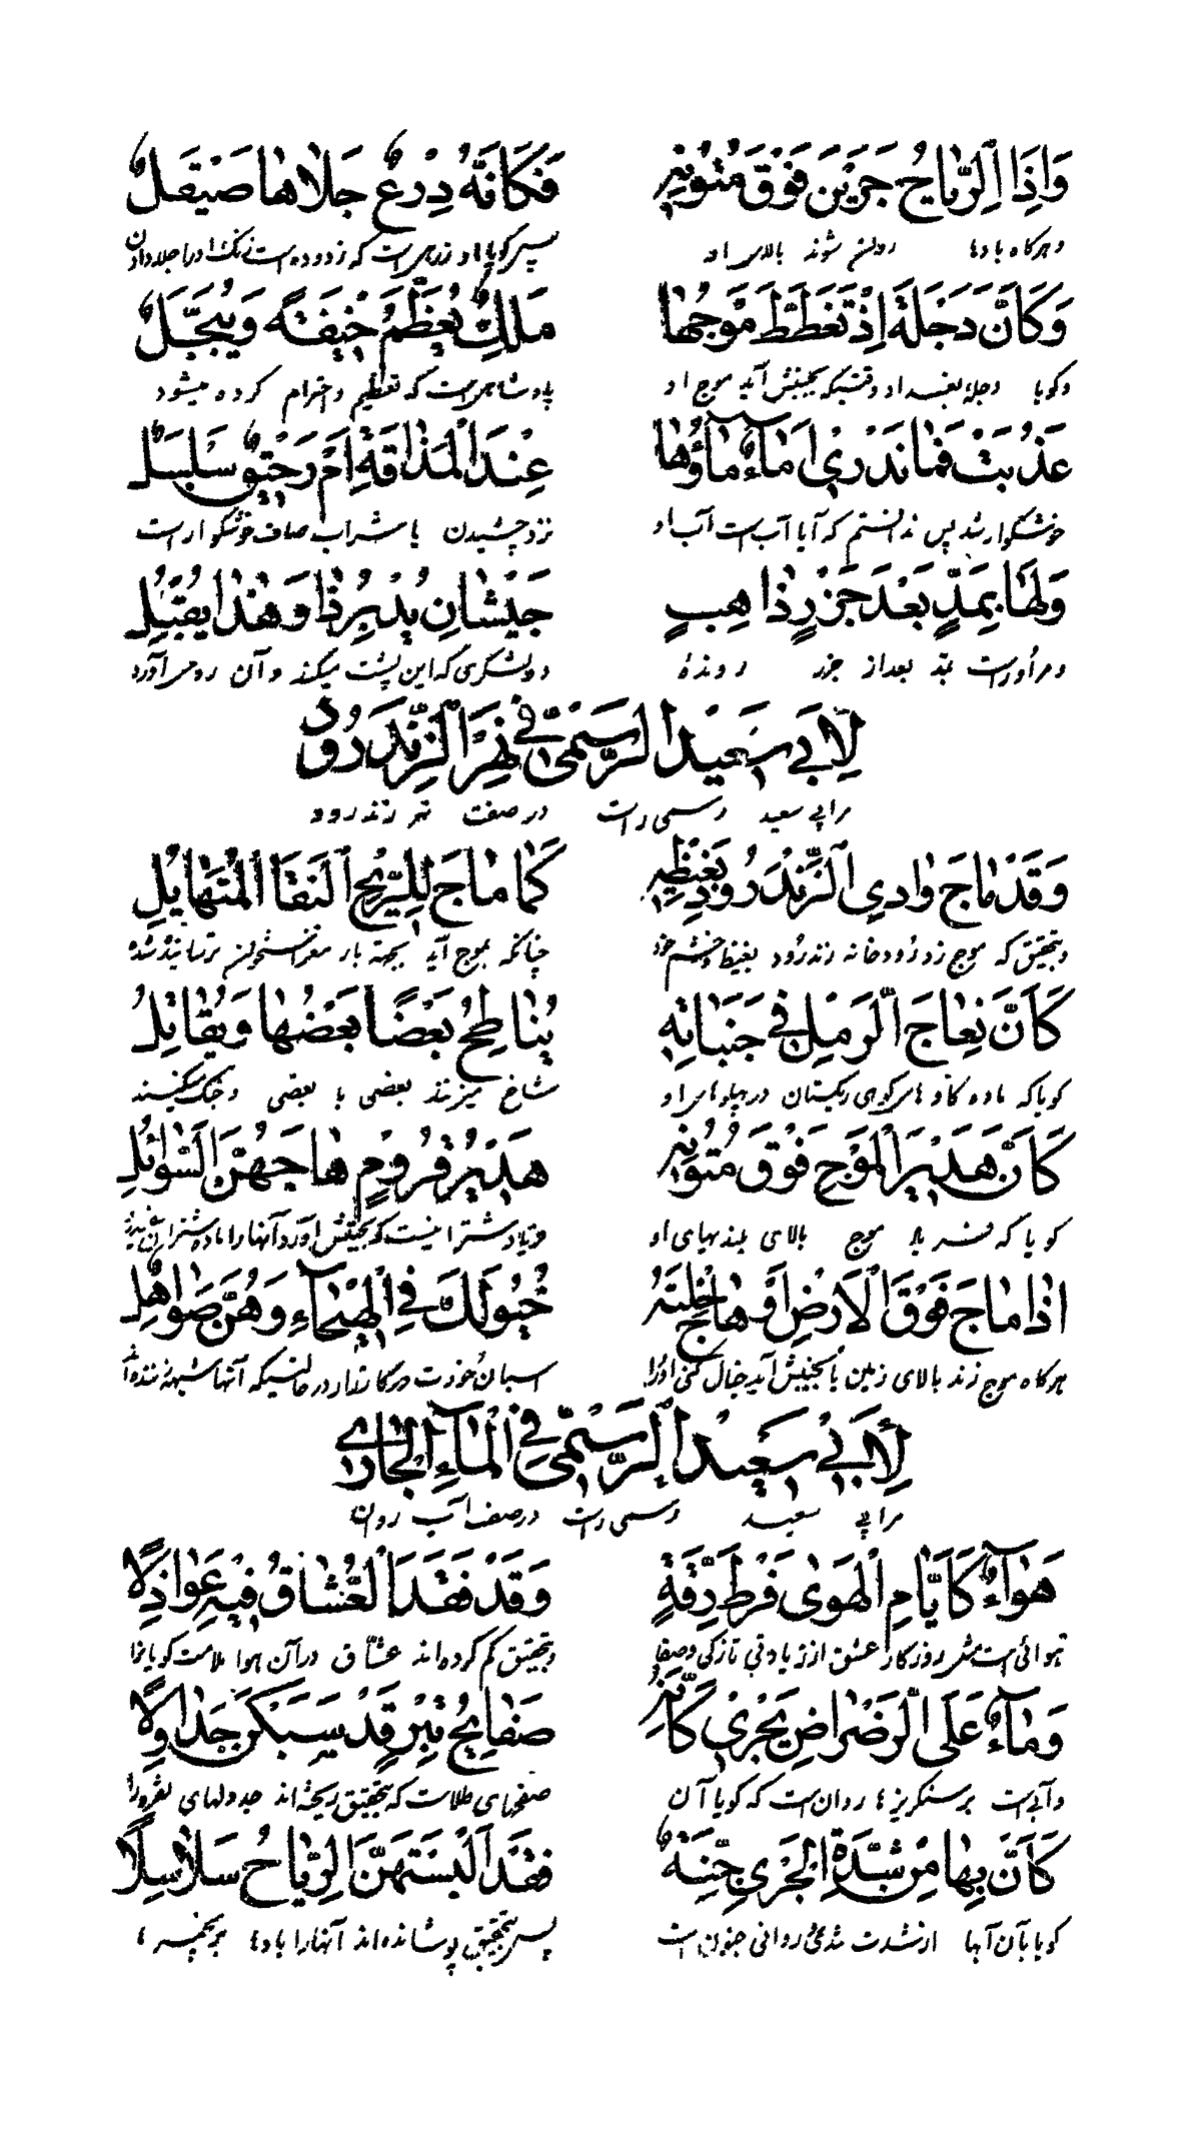 وَإِذَا الرِّيَاحُ جَرَيْنَ فَوْقَ مُتُونِهِ فَكَأَنَّهُ دِرْعٌ جَلَاهَا صَيْقَلُ
وهرگاه بادها روان شوند بالای او پس گویا او زرهی است که زدوده است زنگ او را جلادادن
وَكَأَنَّ دِجْلَةَ إِذْ تَغَطْغَطَ مَوْجُهَا مَلِكٌ يُعَظَّمُ خِيفَةً وَيُبَجَّلُ
وگویا دجله بغداد وقتیکه بجنبش آید موج او پادشاهی است که تعظیم و احترام کرده میشود
عَذُبَتْ فَمَا نَدْرِي أَمَاءٌ مَاؤُهَا عِنْدَ الْمَذَاقَةِ أَمْ رَحِيقٌ سَلْسَلُ
خوشگوار شد پس ندانستم که آیا آب است آب او نزد چشیدن یا شراب صاف خوشگوار است
وَلَهَا بِمَدٍّ بَعْدَ جَزْرٍ ذَاهِبٍ جَيْشَانِ يُدْبِرُ ذَا وَهٰذَا يُقْبِلُ
و مر او راست بمد بعد از جزر رونده دو لشکری که این پشت میکند و آن رو می آورد
لِأَبِي سَعِيدٍ الرُّسْتَمِيِّ فِي نَهْرِ الزَّنْدَرُودِ
مر ابی سعید رستمی راست در صفت نهر زندرود
وَقَدْ مَاجَ وَادِي الزَّنْدَرُودِ بِغَيْظِهِ كَمَا مَاجَ لِلرِّيحِ النَّقَا الْمُتَهَايِلُ
وبتحقیق که موج زد رودخانه زندرود بغیظ و خشم خود چنانکه بموج آید بجهة باد
كَأَنَّ نِعَاجَ الرَّمْلِ فِي جَنَبَاتِهِ يُنَاطِحُ بَعْضًا بَعْضُهَا وَيُقَاتِلُ
گویا که ماده گاوهای کوهی ریگستان در پهلوهای او شاخ میزنند بعضی با بعضی و جنگ میکنند
كَأَنَّ هَدِيرَ الْمَوْجِ فَوْقَ مُتُونِهِ هَدِيرُ قُرُومٍ هَاجَهُنَّ الشَّوَائِلُ
گویا که موج بالای بلندیهای او فریاد شترانیست که بجنبش آورد آنها را ماده شتران
إِذَا مَاجَ فَوْقَ الْأَرْضِ أَوْ هَاجَ خِلْتَهُ خُيُولَكَ فِي الْهَيْجَاءِ وَهُنَّ صَوَاهِلُ
هرگاه موج زند بالای زمین یا بجنبش آید خیال کنی او را اسبان خودت در کارزار در حالتیکه آنها شیهه زننده اند
لِأَبِي سَعِيدٍ الرُّسْتَمِيِّ فِي الْمَاءِ الْجَارِي
مر ابی سعید رستمی راست در صفت آب روان
هَوَاءٌ كَأَيَّامِ الْهَوَى فَرْطَ رِقَّةٍ وَقَدْ فَقَدَ الْعُشَّاقُ فِيهِ عَوَاذِلَا
هوائی است مثل روزگار عشق از زیادتی نازکی و صفا وبتحقیق گم کرده اند عشاق در آن هوا ملامت گویان را
وَمَاءٌ عَلَى الرَّضْرَاضِ يَجْرِي كَأَنَّهُ صَفَائِحُ تِبْرٍ قَدْ سُبِكْنَ جَدَاوِلَا
وآبی است بر سنگریزها روان است که گویا آن صفحهای طلاست که بتحقیق ریخته اند جدولهای
كَأَنَّ بِهَا مِنْ شِدَّةِ الْجَرْيِ جِنَّةً فَقَدْ أَلْبَسَتْهُنَّ الرِّيَاحُ سَلَاسِلَا
گویا بآن آبها از شدت روانی جنون است پس بتحقیق پوشانده اند آنها را بادها